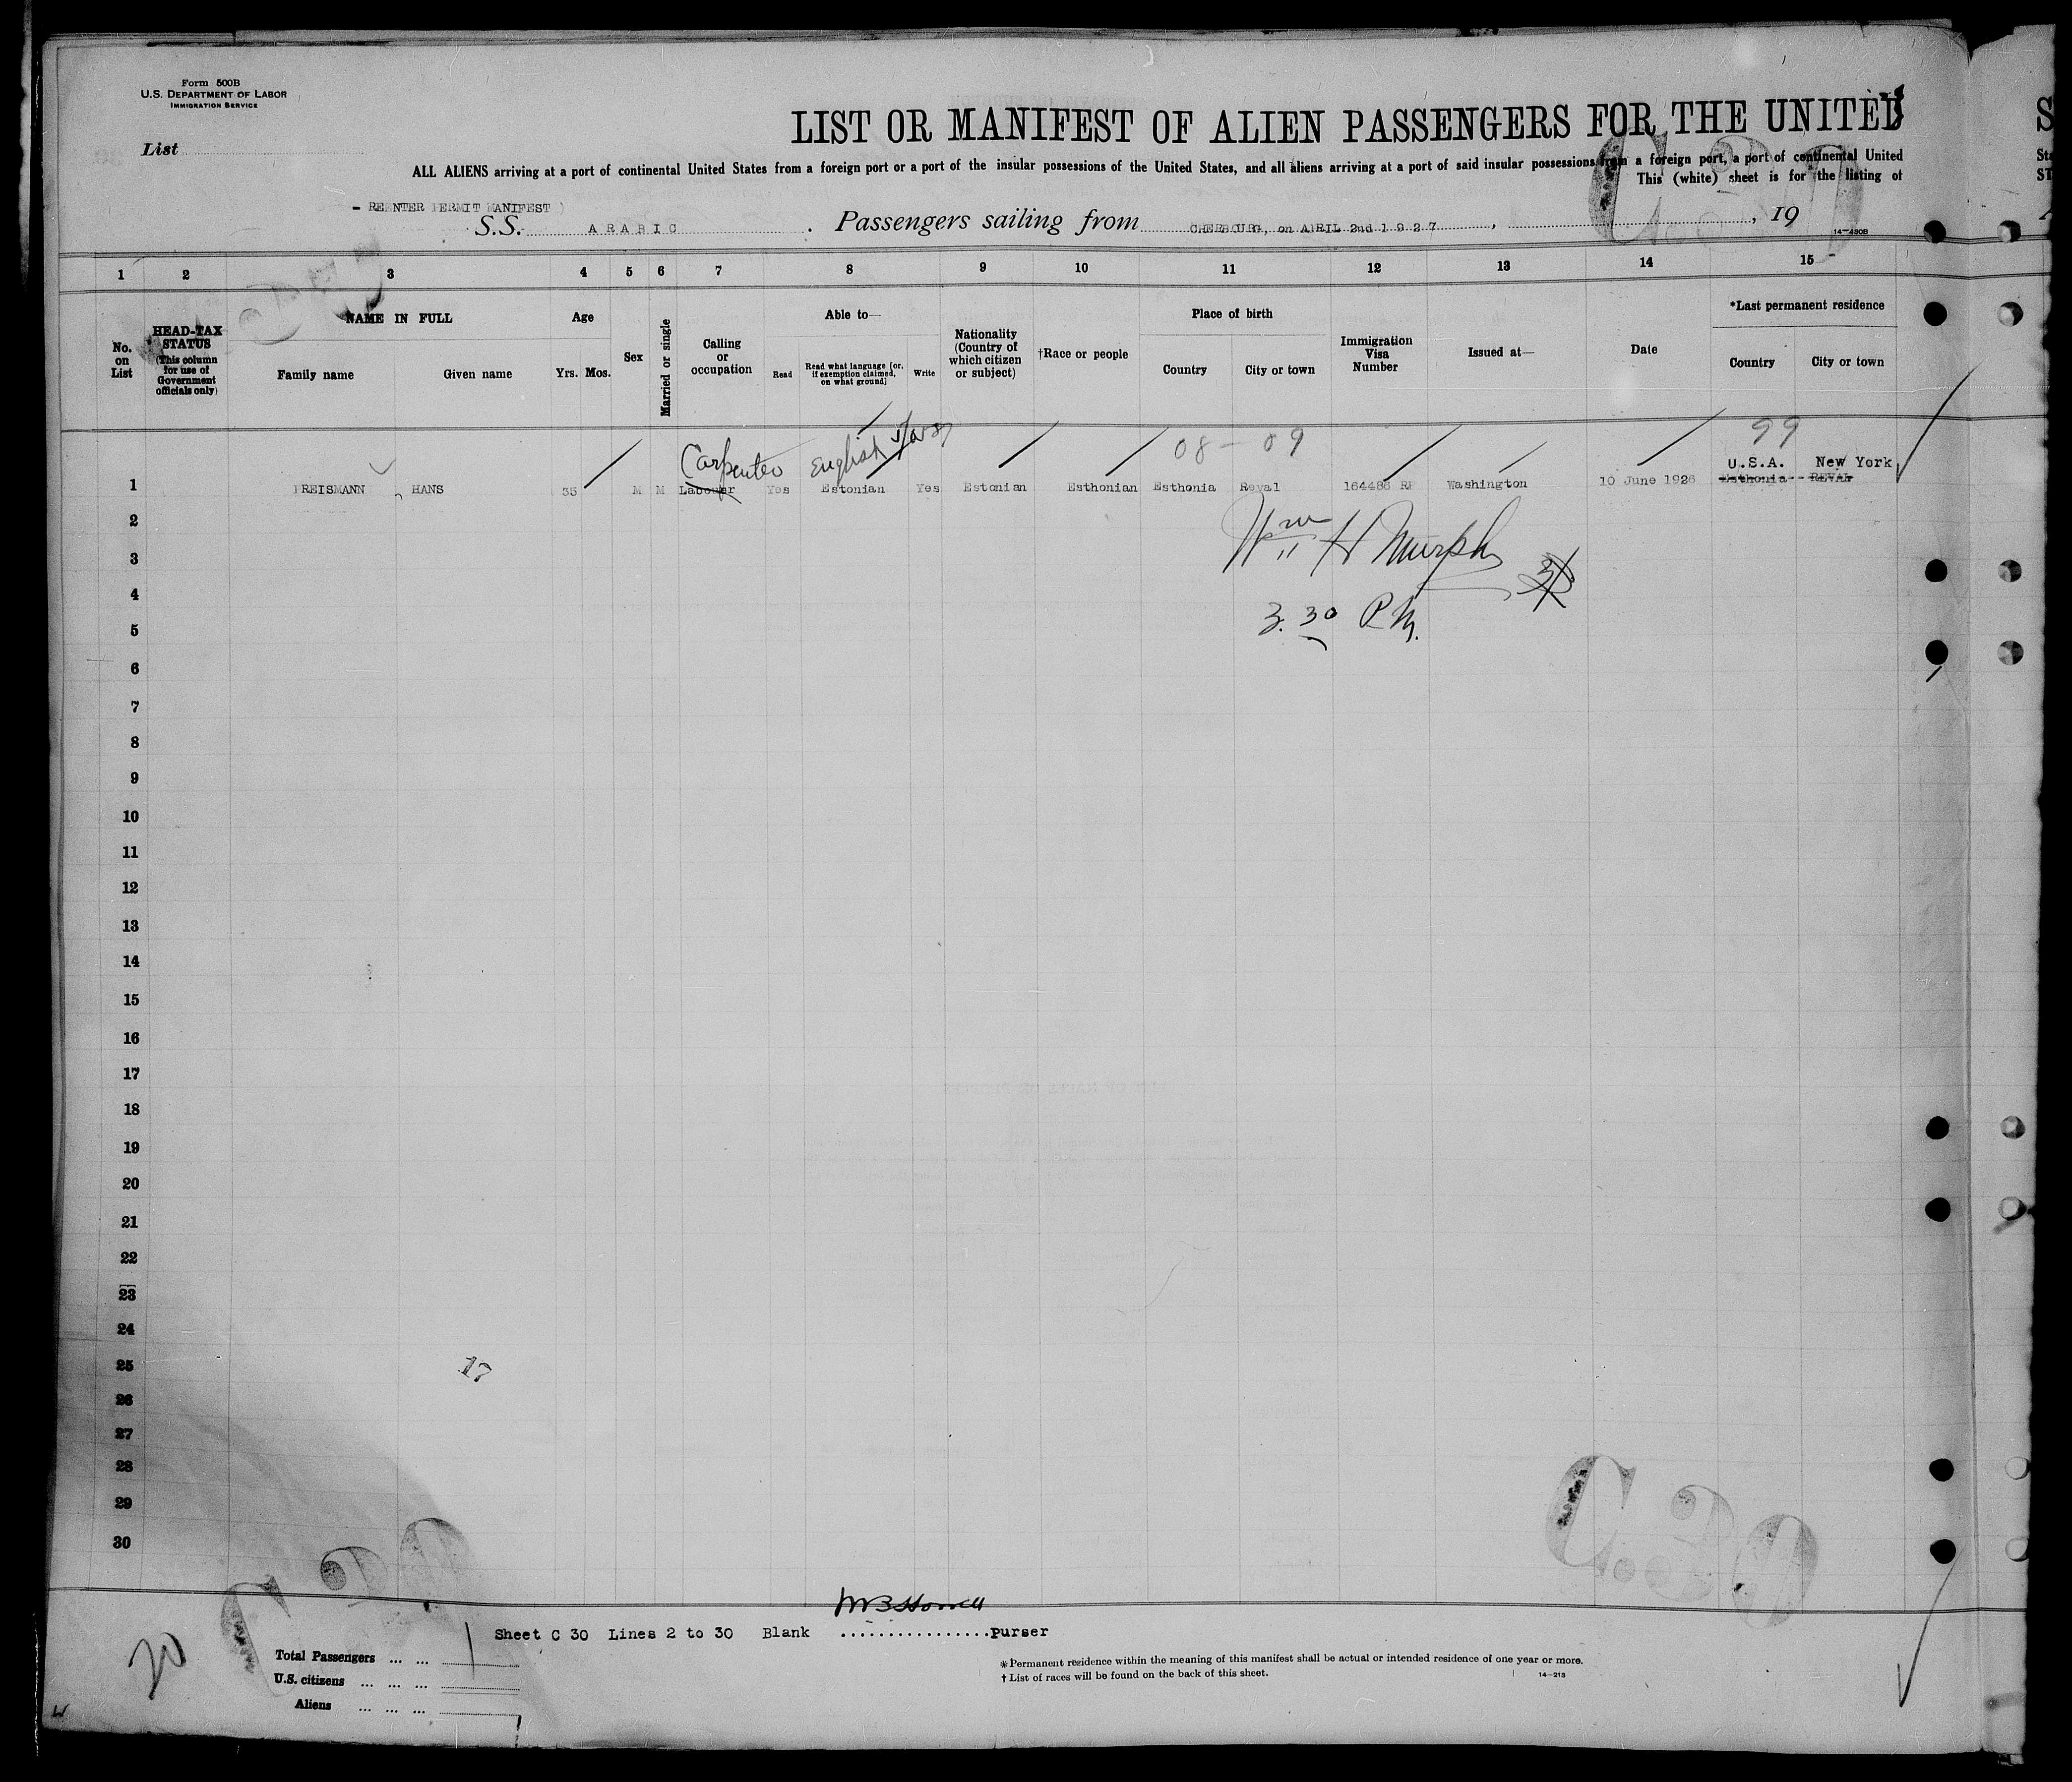 Form 500B
U.S. DEPARTMENT OF LABOR
IMMIGRATION SERVICE
List
LIST OR MANIFEST OF ALIEN PASSENGERS FOR THE UNITED
ALL ALIENS arriving at a port of continental United States from a foreign port or a port of the insular possessions of the United States, and all aliens arriving at a port of said insular possessions from a foreign port, a port of continental United
This (white) sheet is for the listing of
- REENTER PERMIT MANIFEST
S.S. ARABIC . Passengers sailing from CHERBOURG, on APRIL 2nd 1927 , , 19
14-430B
1 2 3 4 5 6 7 8 9 10 11 12 13 14 15
No. on List
HEAD-TAX STATUS (This column for use of Government officials only)
NAME IN FULL
Family name Given name
Age
Yrs. Mos.
Sex
Married or single
Calling or occupation
Able to—
Read
Read what language [or, if exemption claimed, on what ground]
Write
Nationality (Country of which citizen or subject)
†Race or people
Place of birth
Country City or town
Immigration Visa Number
Issued at—
Date
*Last permanent residence
Country City or town
Carpenter English 08 - 09 99
U.S.A. New York
1 PREISMANN HANS 35 M M Labourer Yes Estonian Yes Estonian Esthonian Esthonia Reval 164486 RP Washington 10 June 1926 Esthonia--REVAL
2
Wm H Murphy
3
4
3.30 P.M.
5
6
7
8
9
10
11
12
13
14
15
16
17
18
19
20
21
22
23
24
25
17
26
27
28
29
30
C.30
Sheet C 30 Lines 2 to 30 Blank ................purser
20
Total Passengers ... ... 1
U.S. citizens ... ... ...
Aliens ... ... ...
*Permanent residence within the meaning of this manifest shall be actual or intended residence of one year or more.
†List of races will be found on the back of this sheet.
14-213